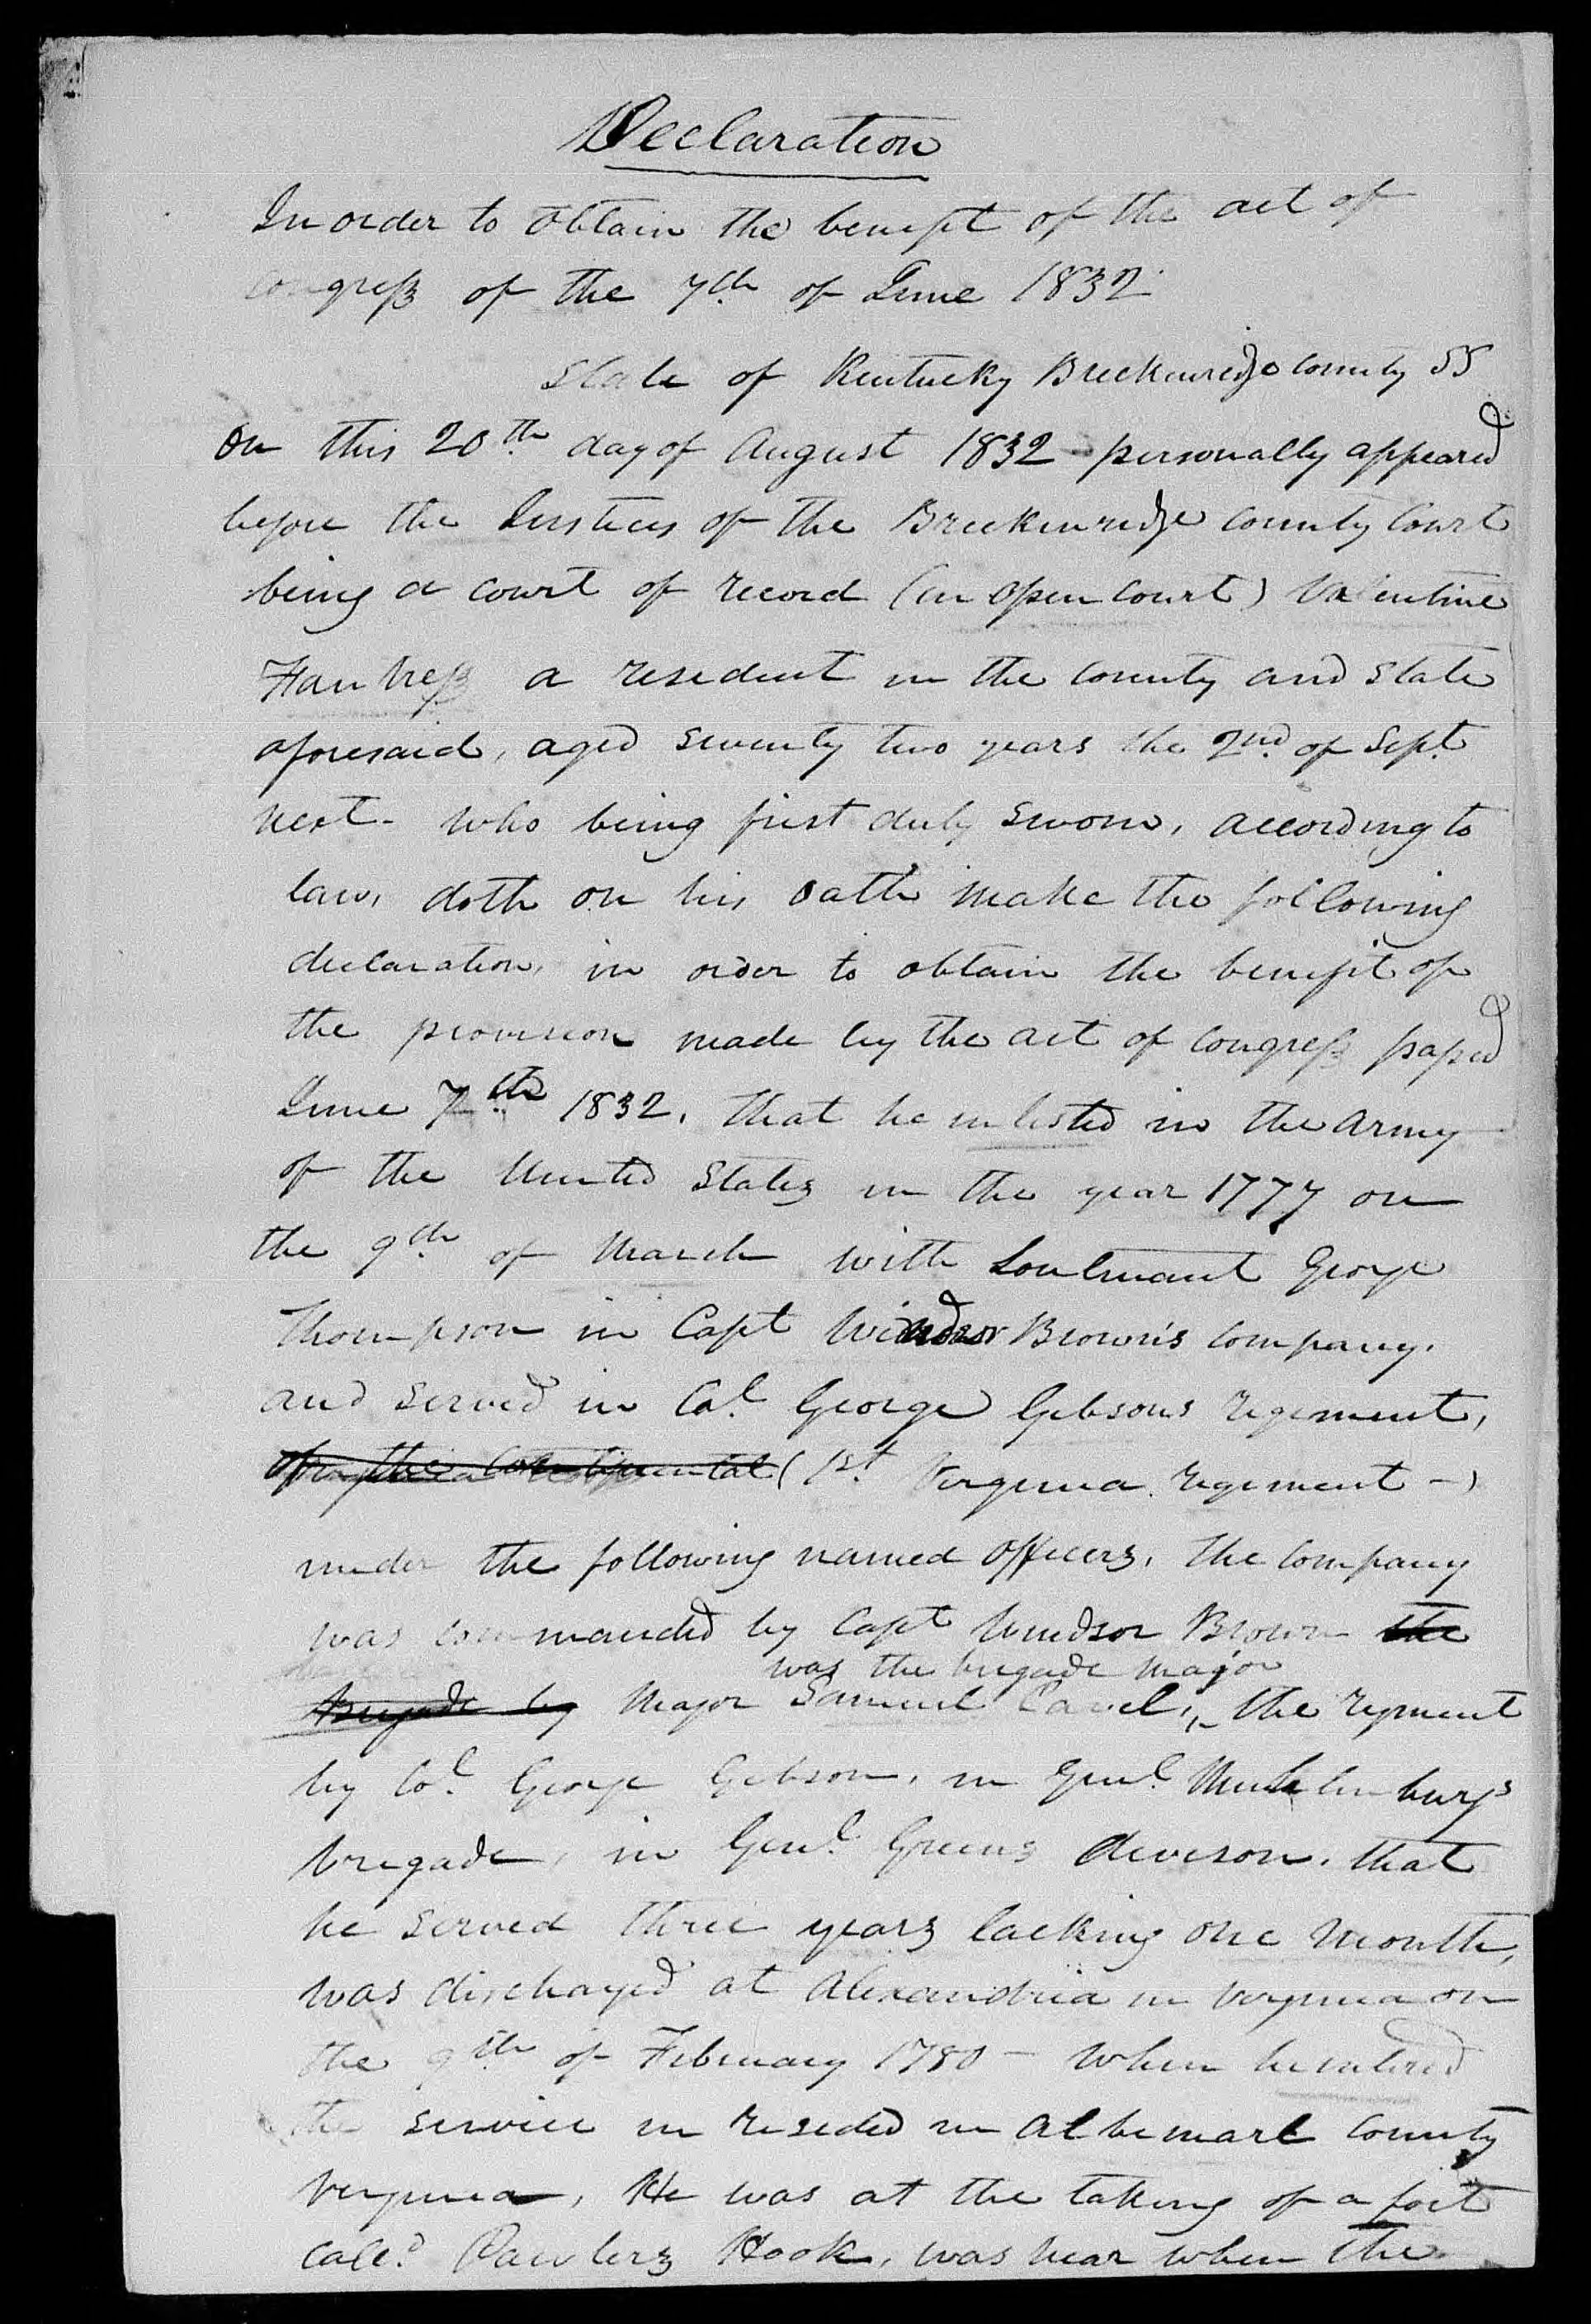 Declaration
In order to obtain the benefit of the act of
congress of the 7th of June 1832
State of Kentucky Breckenridge County SS
On this 20th day of August 1832 personally appeared
before the Justices of the Breckenridge county Court
being a court of record (in open court) Valentine
Hantress a resident in the county and State
aforesaid, aged seventy two years the 2nd of Sept
next - who being first duly sworn, according to
law, doth on his oath make the following
declaration, in order to obtain the benefit of
the provision made by the act of congress passed
June 7th 1832, that he inlisted in the army
of the United States in the year 1777 on
the 9th of March with Loutenant George
Thompson in Capt Windsor Brown's company.
and served in Col George Gibsons regiment,
(1st Virginia regiment -)
under the following named officers, the company
was commanded by Capt Windsor Brown the
was the brigade major
Brigade by Major Samuel Cavel, the regiment
by Col George Gibson, in Genl Muhlenburgs
brigade, in Genl Greens devison, that
he served three years lacking one month,
was discharged at Alexandria in Virginia on
the 9th of February 1780 - when he entered
the service in resided in Albemarl County
Virginia, He was at the taking of a fort
calld Pawlers Hook, was near when the